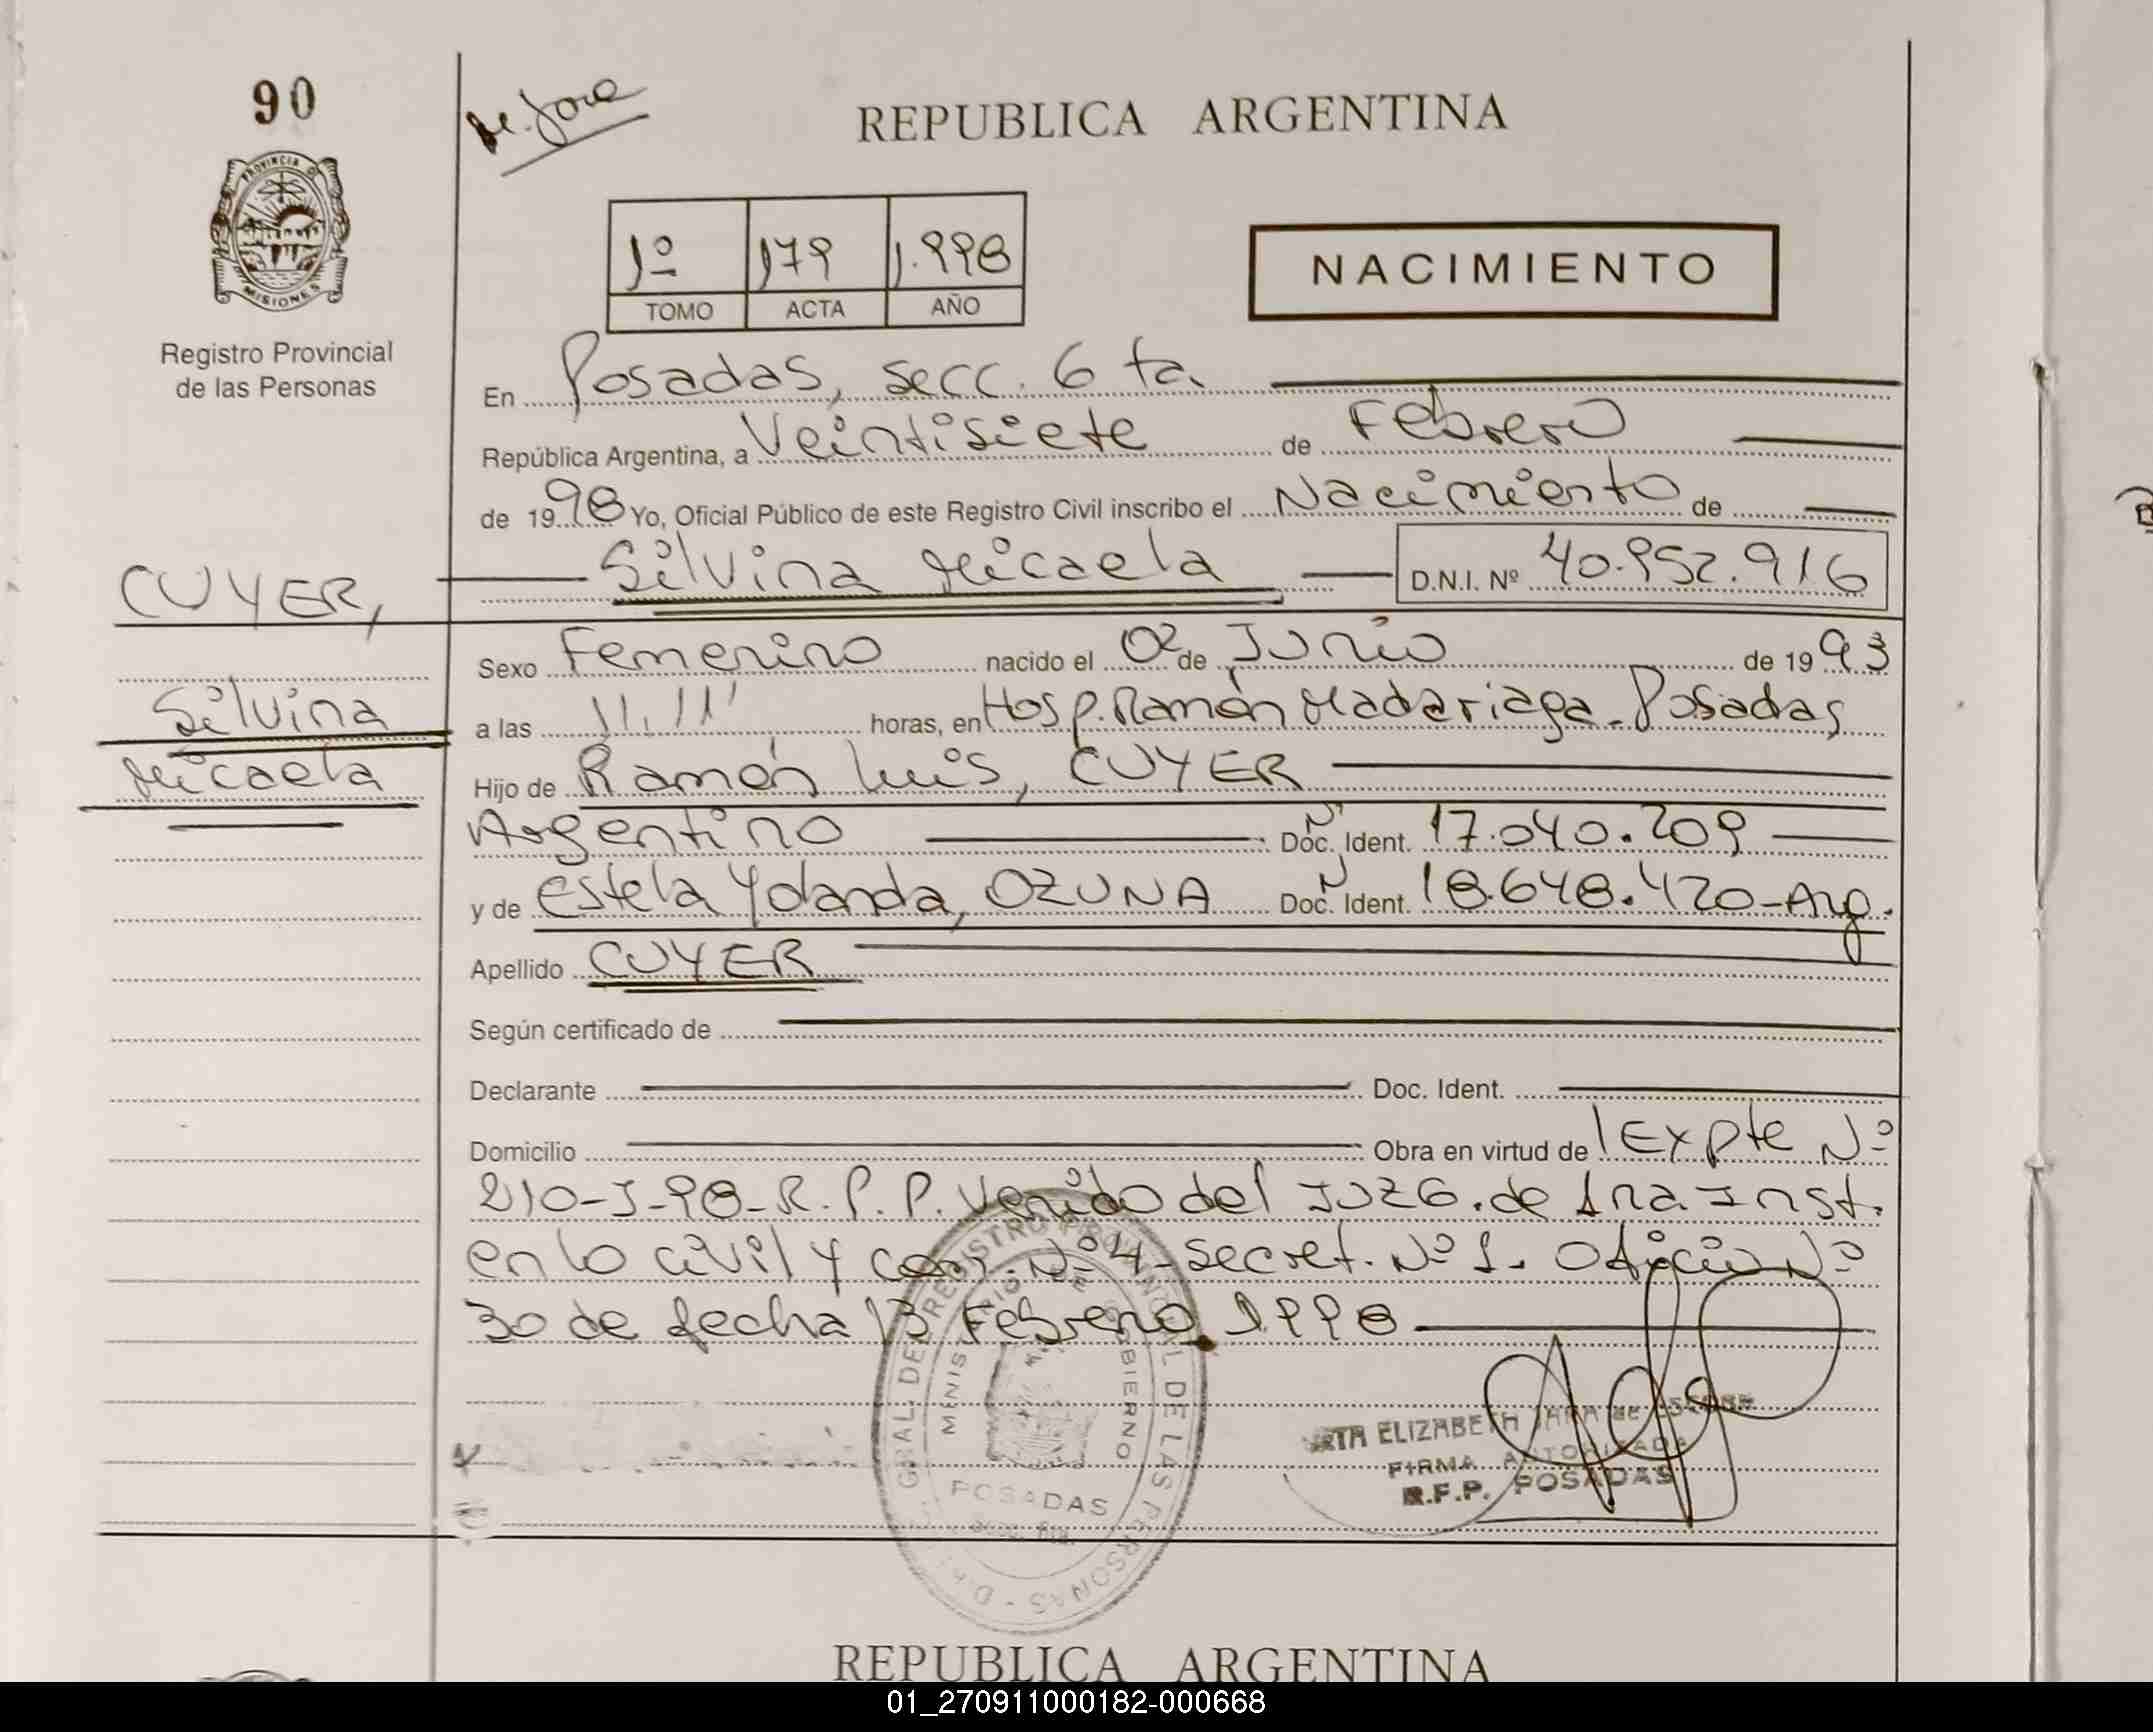 90
REPUBLICA ARGENTINA
PROVINCIA D
MISIONES
Registro Provincial
de las Personas
1º 179 1.998
TOMO ACTA AÑO
NACIMIENTO
En Posadas, secc. 6 ta.
República Argentina, a Veintisiete de Febrero
de 1998 Yo, Oficial Público de este Registro Civil inscribo el Nacimiento de
CUYER, Silvina Micaela D.N.I. Nº 40.952.916
Sexo Femenino nacido el 02 de Junio de 1993
Silvina
a las 11.11' horas, en Hosp. Ramón Madariaga - Posadas
Micaela
Hijo de Ramón Luis, CUYER
Argentino Doc. Ident. Nº 17.040.209
y de Estela Yolanda, OZUNA Doc. Ident. Nº 18.648.420-Arg.
Apellido CUYER
Según certificado de
Declarante Doc. Ident.
Domicilio Obra en virtud de Expte Nº
210-J-98-R.P.P. Venido del JUZG. de 1ra Inst.
en lo civil y com. Nº 4 - Secret. Nº 1. Oficio Nº
30 de fecha 13 Febrero 1998
GRAL. DEL REGISTRO PROVINCIAL DE LAS PERSONAS
MINISTERIO DE GOBIERNO
POSADAS
ELIZABETH JARA de
FIRMA AUTORIZADA
R.F.P. POSADAS
REPUBLICA ARGENTINA
01_270911000182-000668